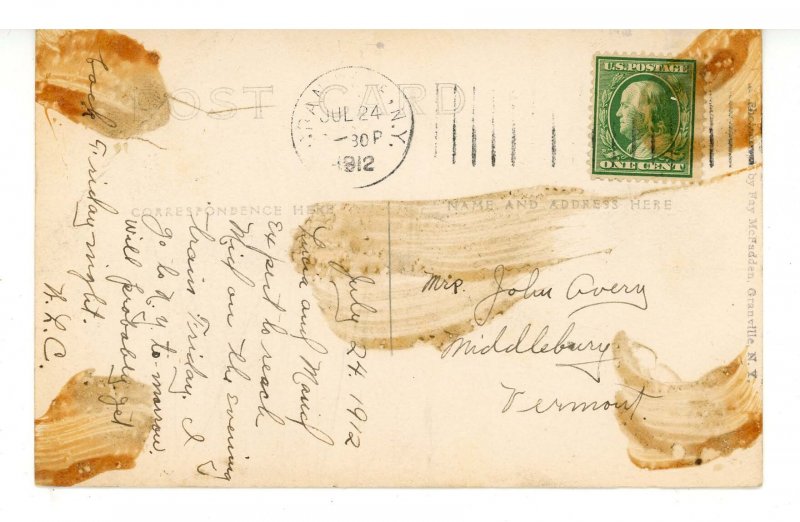 POST CARD
JUL 24
-30P
1912
N.Y.
U.S. POSTAGE
ONE CENT
CORRESPONDENCE HERE
NAME AND ADDRESS HERE
July 24 1912
and
Expect to reach
Mid on the evening
train Friday. I
go to N.Y to-morrow.
will probably get
back Friday night.
H.L.C.
Mrs. John Avery
Middlebury
Vermont.
by Ray McFadden, Granville, N. Y.